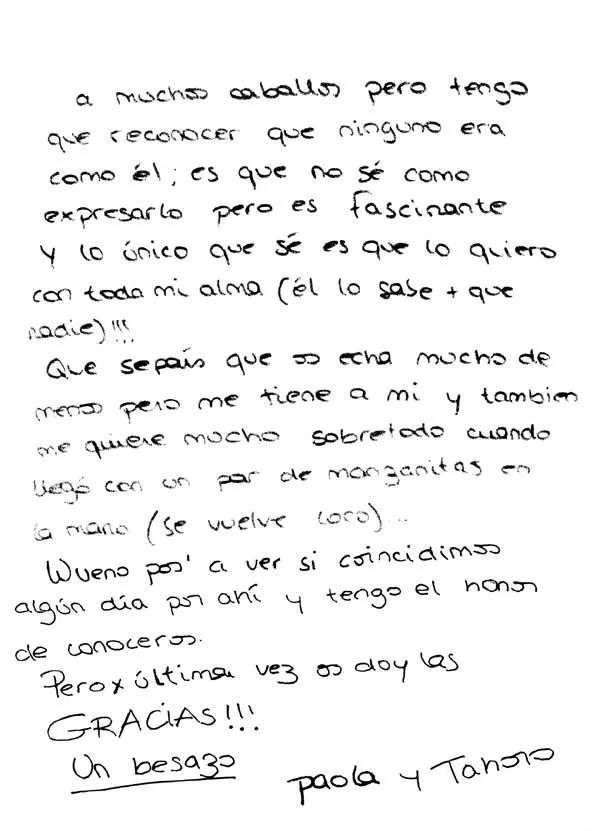 a muchos caballos pero tengo
que reconocer que ninguno era
como él; es que no sé como
expresarlo pero es fascinante
y lo único que sé es que lo quiero
con toda mi alma (él lo sabe + que
nadie)!!!
Que sepaís que os echa mucho de
menos pero me tiene a mi y tambien
me quiere mucho sobretodo cuando
llegó con un par de manzanitas en
la mano (se vuelve loro)...
Wueno pos' a ver si coincidimos
algún día por ahí y tengo el honor
de conoceros.
Pero x última vez os doy las
GRACIAS!!!
Un besazo
paola y Tanoro